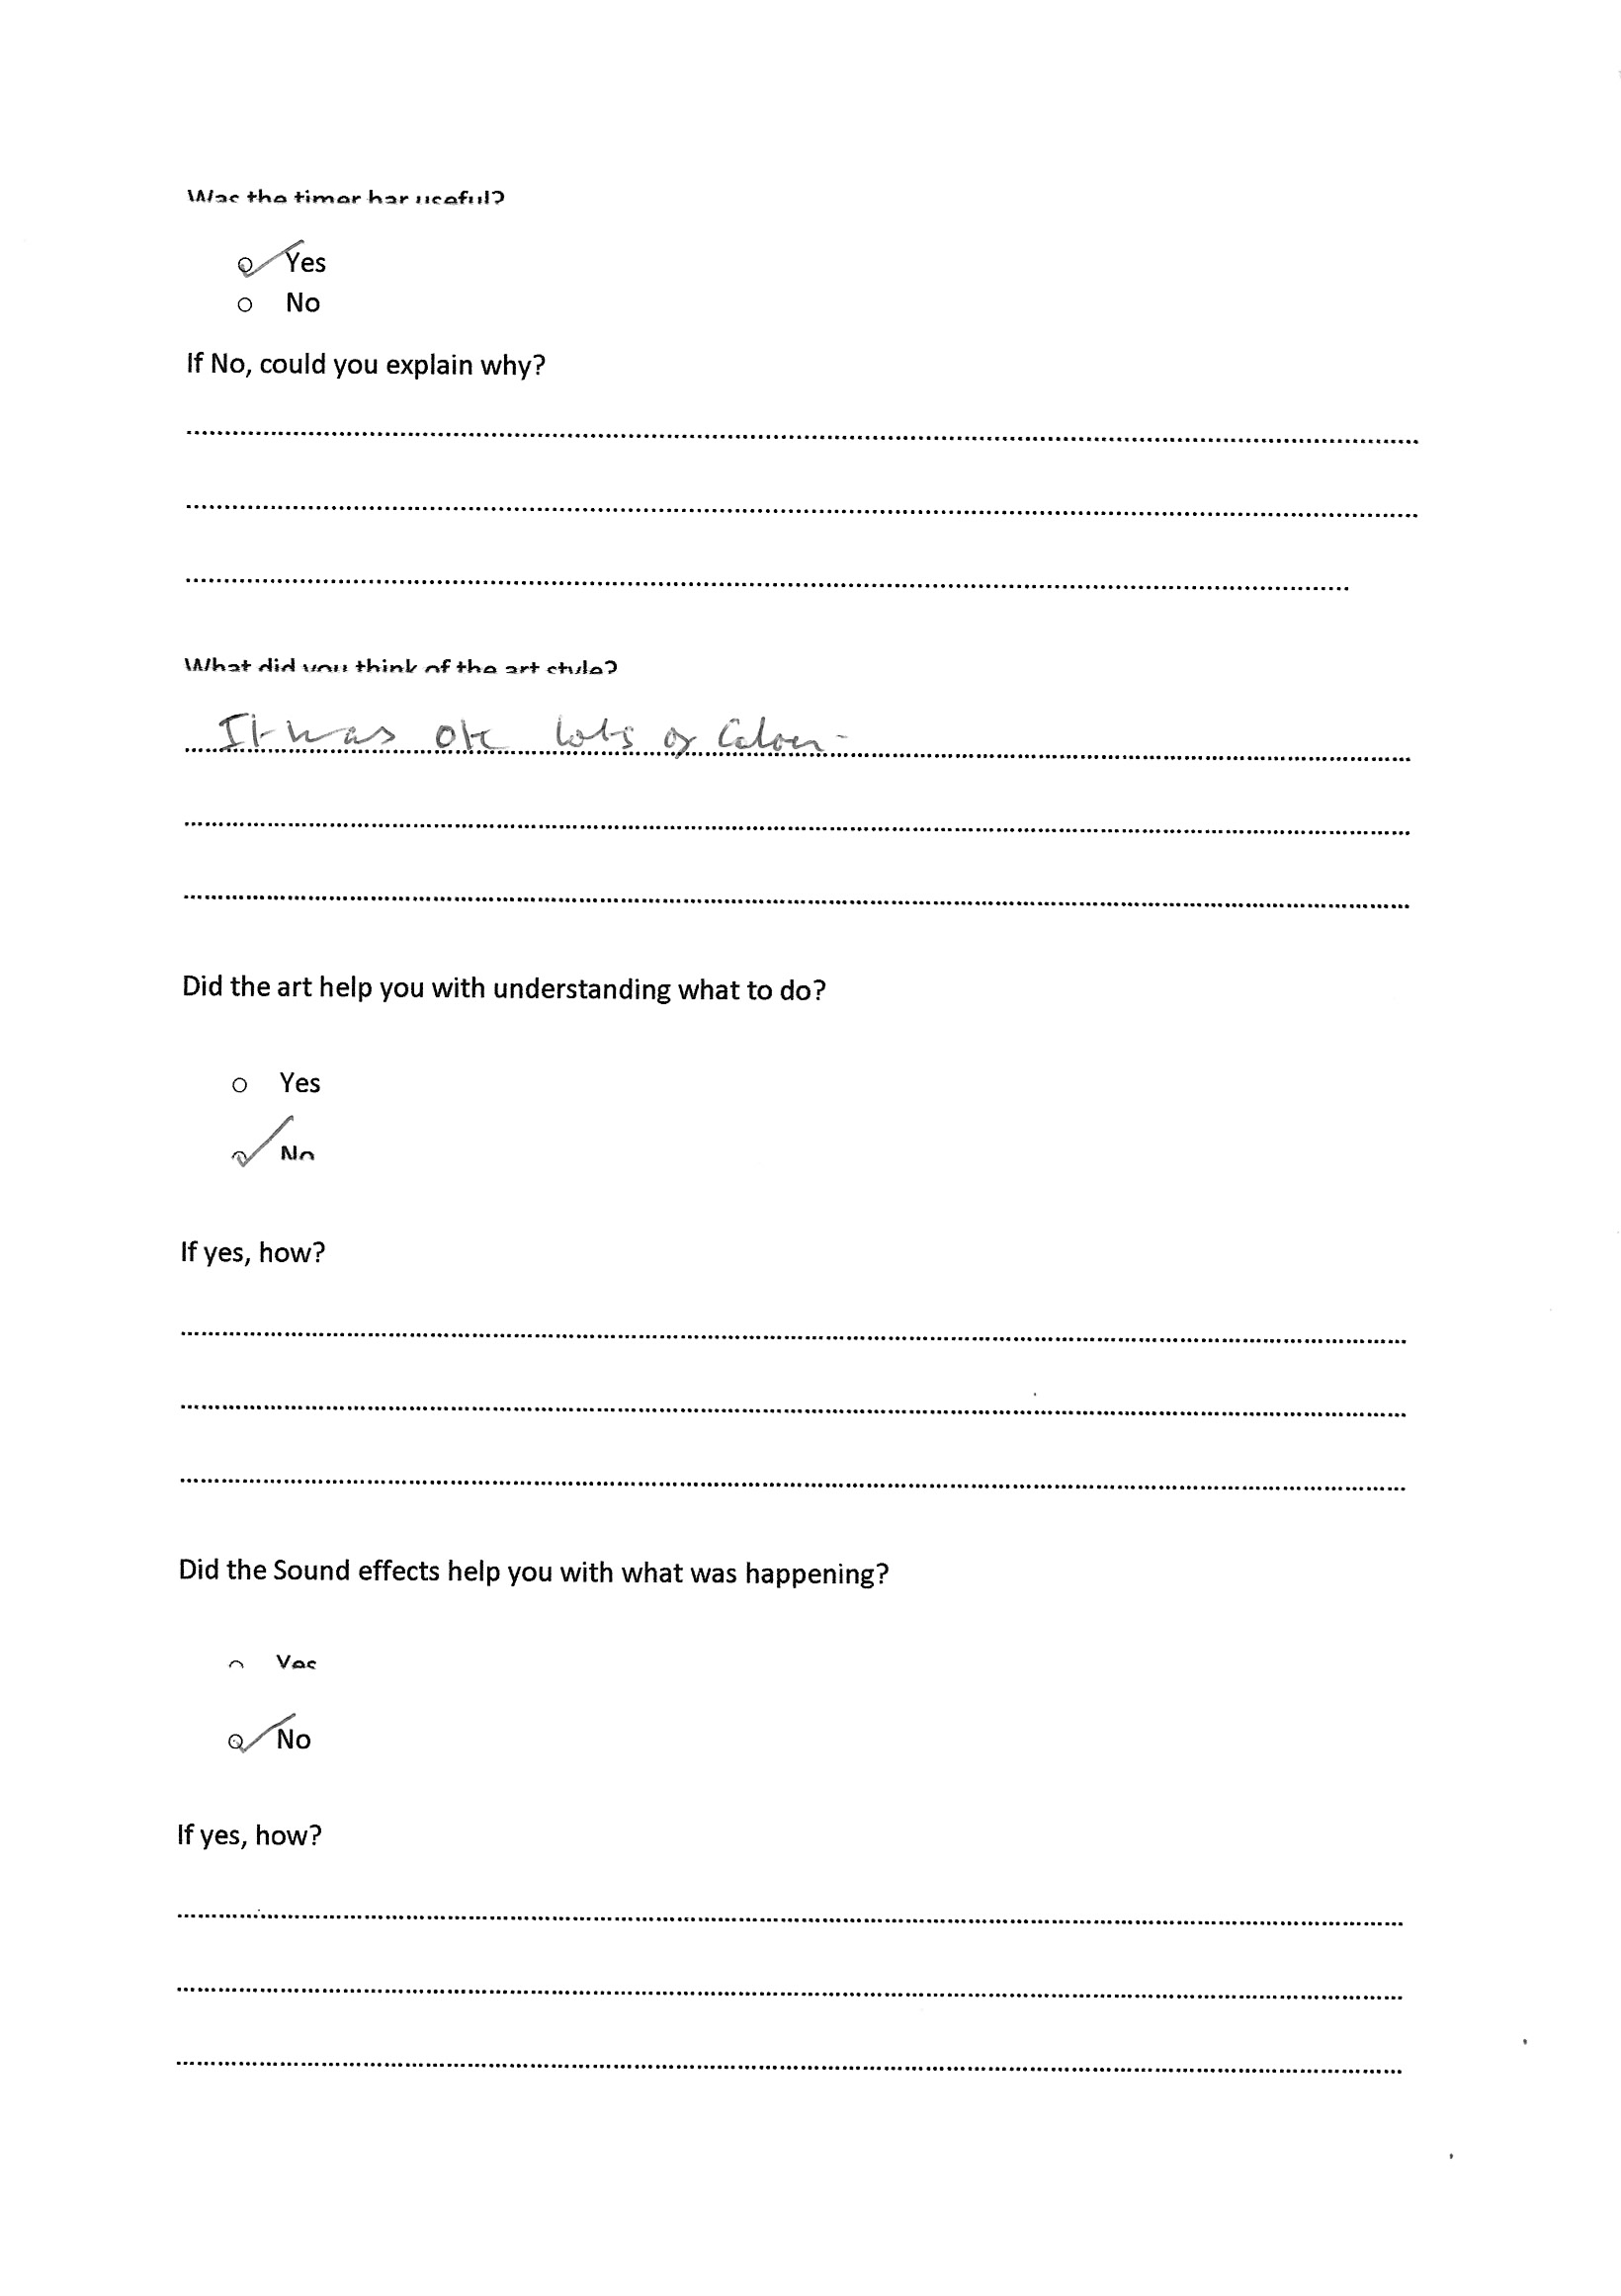 Was the timer bar useful?
Yes
No
If No, could you explain why?
What did you think of the art style?
It was ok lots of Colour.
Did the art help you with understanding what to do?
Yes
No
If yes, how?
Did the Sound effects help you with what was happening?
Yes
No
If yes, how?